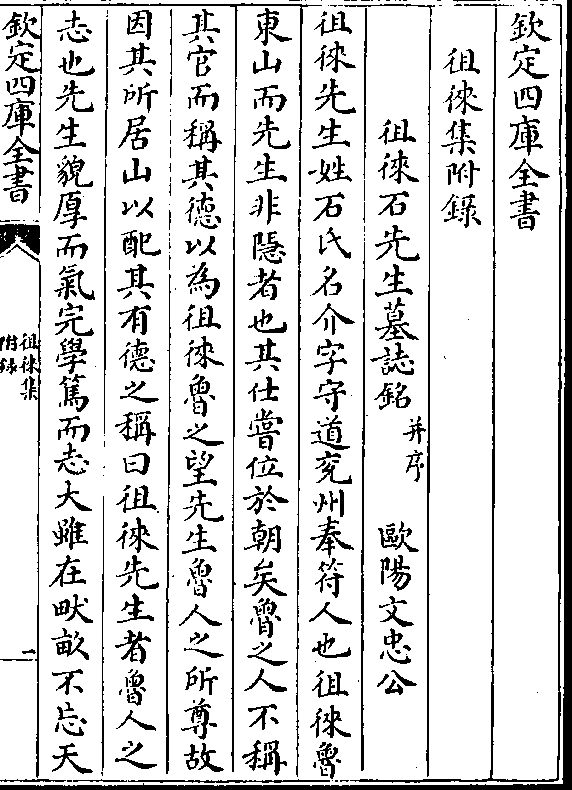 欽定四庫全書
徂徠集附錄
徂徠石先生墓誌銘并序 歐陽文忠公
徂徠先生姓石氏名介字守道兖州奉符人也徂徠魯
東山而先生非隱者也其仕嘗位於朝矣魯之人不稱
其官而稱其德以為徂徠魯之望先生魯人之所尊故
因其所居山以配其有德之稱曰徂徠先生者魯人之
志也先生貌厚而氣完學篤而志大雖在畎畝不忘天
欽定四庫全書
徂徠集
附錄
一